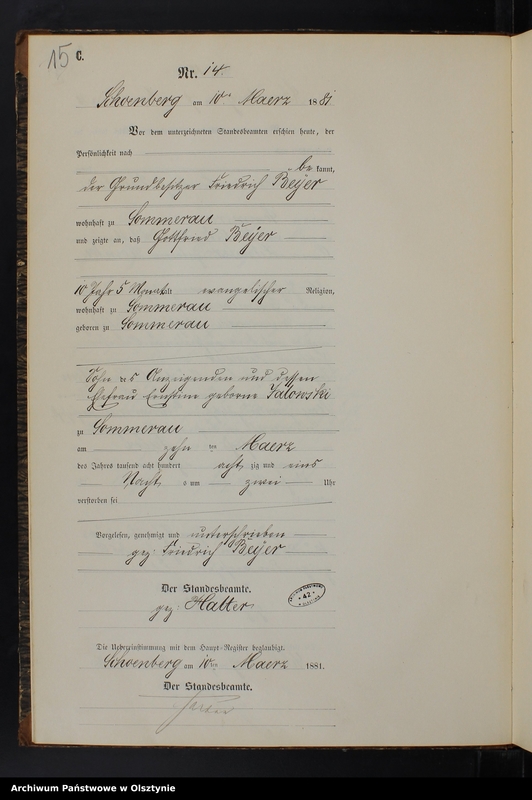 15
C.
Nr. 14
Schoenberg am 10ten Maerz 1881
Vor dem unterzeichneten Standesbeamten erschien heute, der
Persönlichkeit nach
be kannt,
der Grundbesitzer Friedrich Beyer
wohnhaft zu Sommerau
und zeigte an, daß Gottfried Beyer
10 Jahr 5 Monat alt evangelischer Religion,
wohnhaft zu Sommerau
geboren zu Sommerau
Sohn des Anzeigenden und dessen
Ehefrau Ernstine geborne Jalowski
zu Sommerau
am zehn ten Maerz
des Jahres tausend acht hundert acht zig und eins
Nachts um zwei Uhr
verstorben sei
Vorgelesen, genehmigt und unterschrieben
gez: Friedrich Beyer
Der Standesbeamte.
gez: Halter
42
Die Uebereinstimmung mit dem Haupt-Register beglaubigt.
Schoenberg am 10ten Maerz 1881.
Der Standesbeamte.
Archiwum Państwowe w Olsztynie